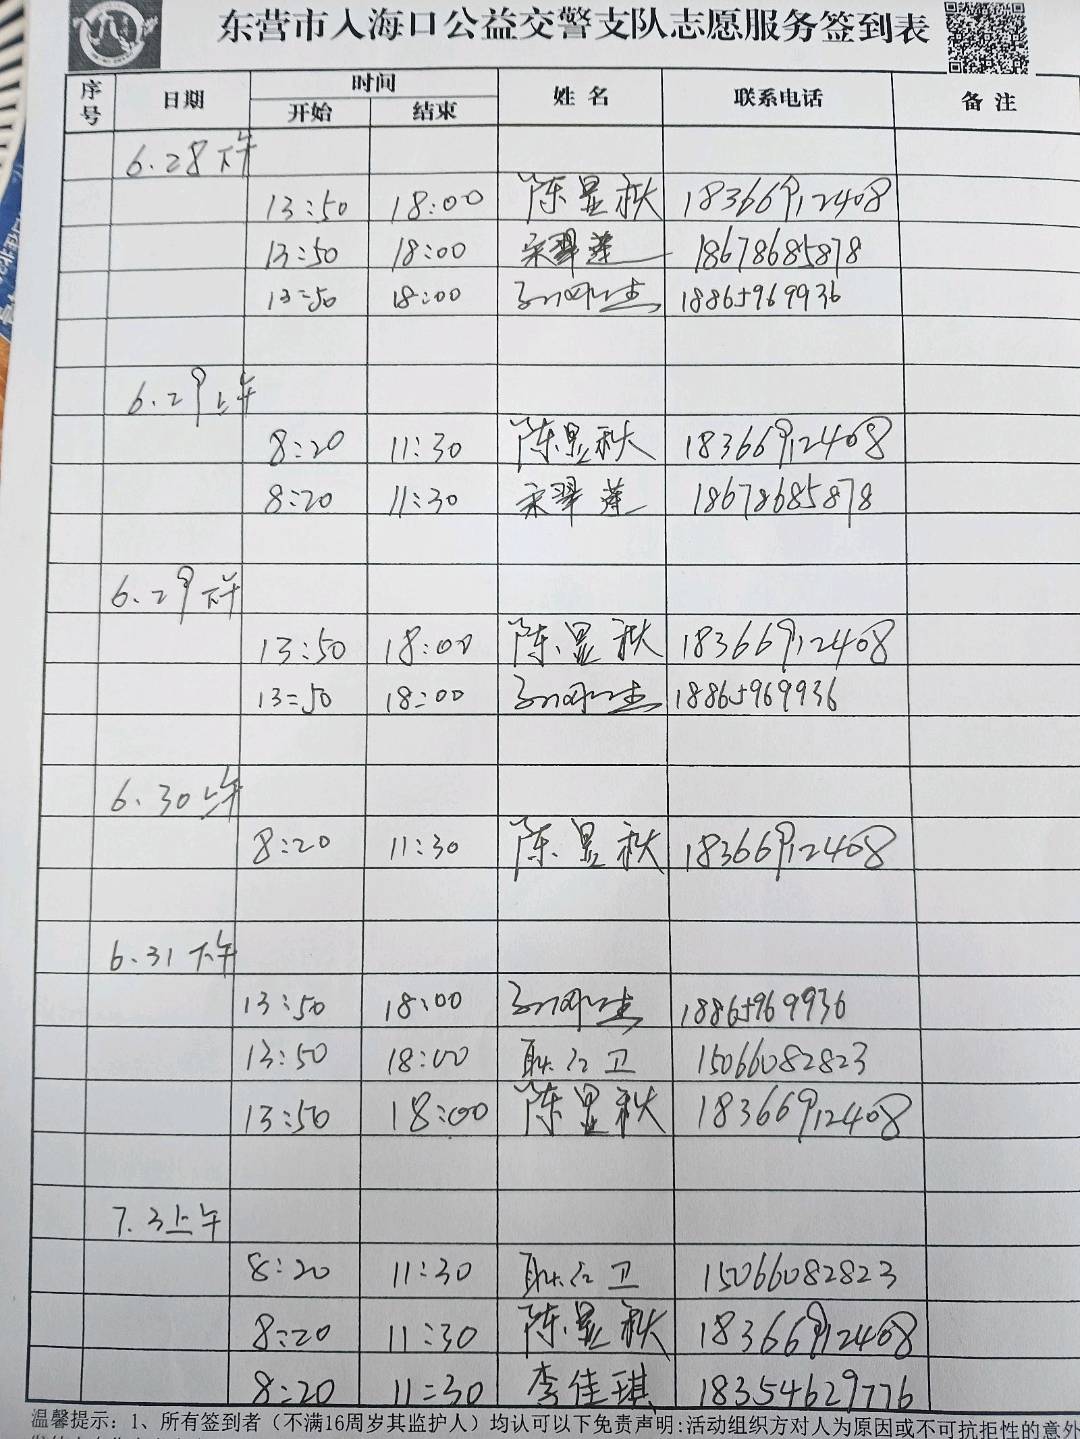 东营市入海口公益交警支队志愿服务签到表
序号 日期 时间 开始 结束 姓名 联系电话 备注
6.28下午
13:50 18:00 陈显秋 18366912408
13:50 18:00 宋翠莲 18678685878
13:50 18:00 18865969936
6.29上午
8:20 11:30 陈显秋 18366912408
8:20 11:30 宋翠莲 18678685878
6.29下午
13:50 18:00 陈显秋 18366912408
13:50 18:00 18865969936
6.30上午
8:20 11:30 陈显秋 18366912408
6.31下午
13:50 18:00 18865969936
13:50 18:00 耿红卫 15066082823
13:50 18:00 陈显秋 18366912408
7.3上午
8:20 11:30 耿红卫 15066082823
8:20 11:30 陈显秋 18366912408
8:20 11:30 李佳琪 18354629776
温馨提示:1、所有签到者(不满16周岁其监护人)均认可以下免责声明:活动组织方对人为原因或不可抗拒性的意外